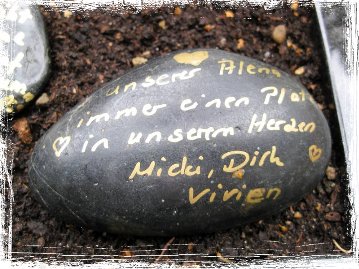 unserer Alena
immer einen Platz
in unserem Herzen
Micki, Dirk
Vivien